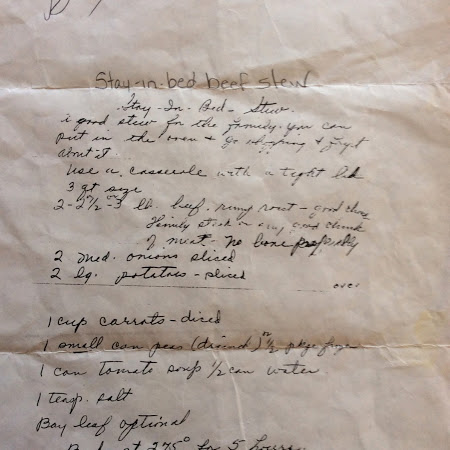 Stay-in-bed beef stew
Stay-In-Bed-Stew.
A good stew for the family. You can
put in the oven & go shopping & forget
about it
Use a casserole with a tight lid
3 qt size
2-2 1/2 or 3 lb. beef. rump roast - good chuck
Family steak or any good chunk
of meat. - no bone preferably
2 med. onions sliced
2 lg. potatoes - sliced
over
1 cup carrots - diced
1 small can peas (drained) or 1/2 pkge froze
1 can tomato soup 1/2 can water
1 teasp. salt
Bay leaf optional
at 275° for 5 hours